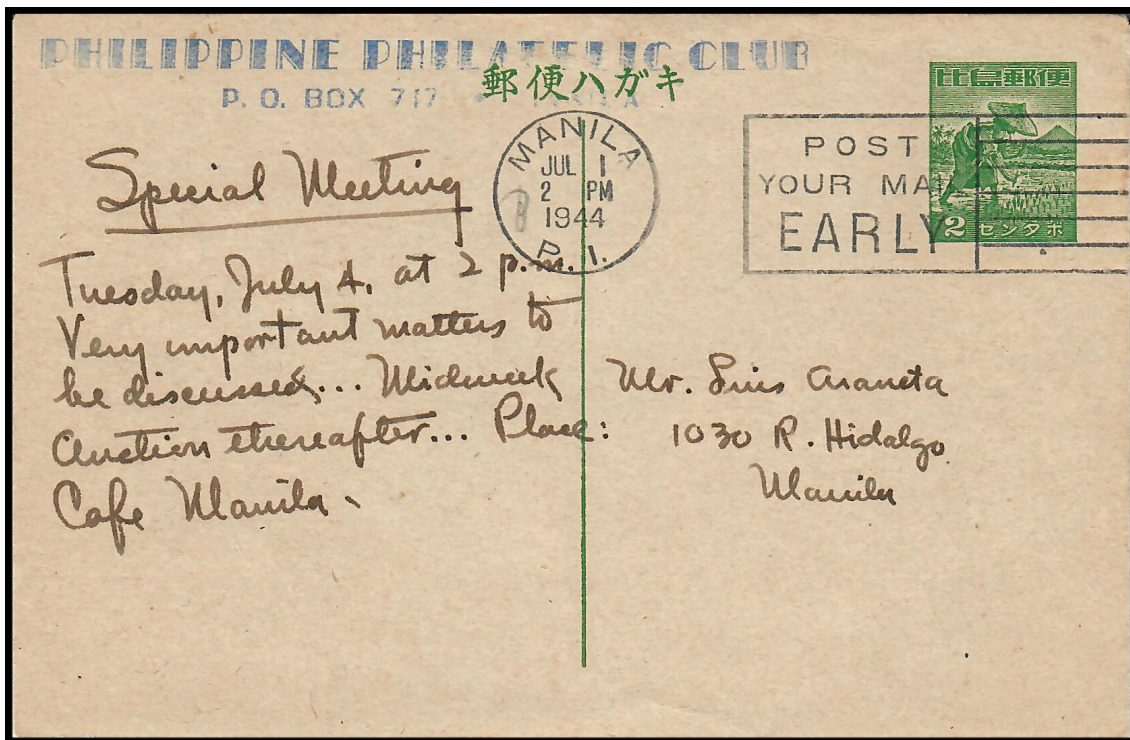 PHILIPPINE PHILATELIC CLUB
P. O. BOX 717
郵便ハガキ
比島郵便
2 センタボ
MANILA
JUL 1
2 PM
1944
P. I.
POST
YOUR MAI
EARLY
Special Meeting
Tuesday, July 4. at 2 p.m.
Very important matters to
be discussed... Midweek
Auction thereafter... Place:
Cafe Manila
Mr. Luis Araneta
1030 R. Hidalgo
Manila